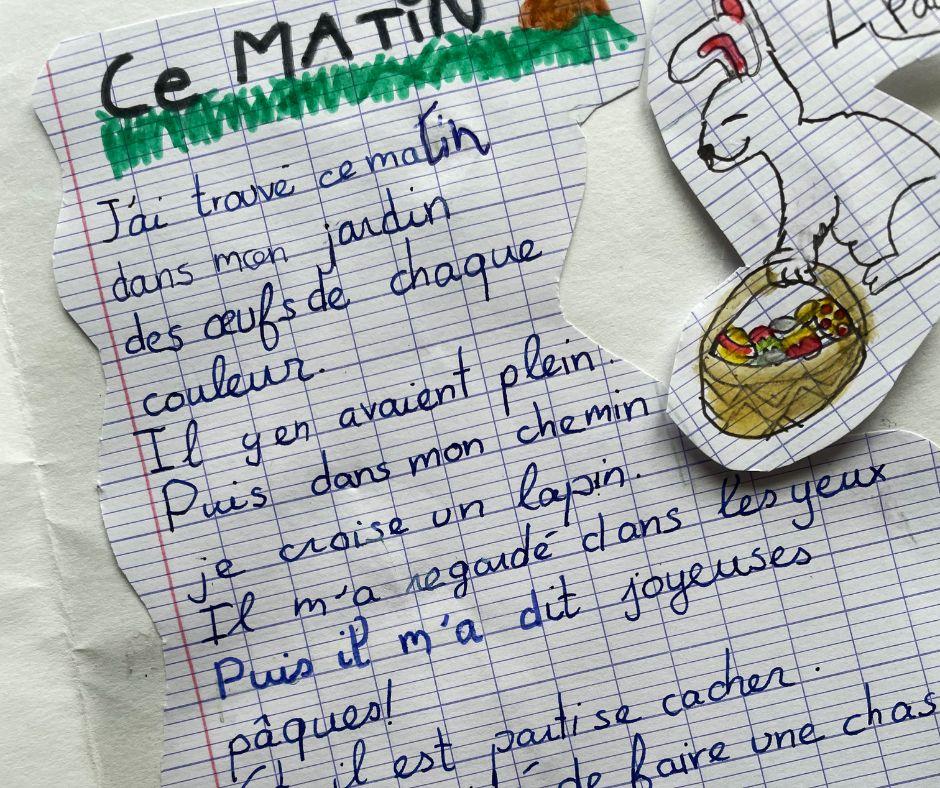 Ce MATIN
J'ai trouvé ce matin
dans mon jardin
des œufs de chaque
couleur.
Il y en avaient plein.
Puis dans mon chemin
je croise un lapin.
Il m'a regardé dans les yeux
Puis il m'a dit joyeuses
pâques!
il est parti se cacher.
de faire une chas